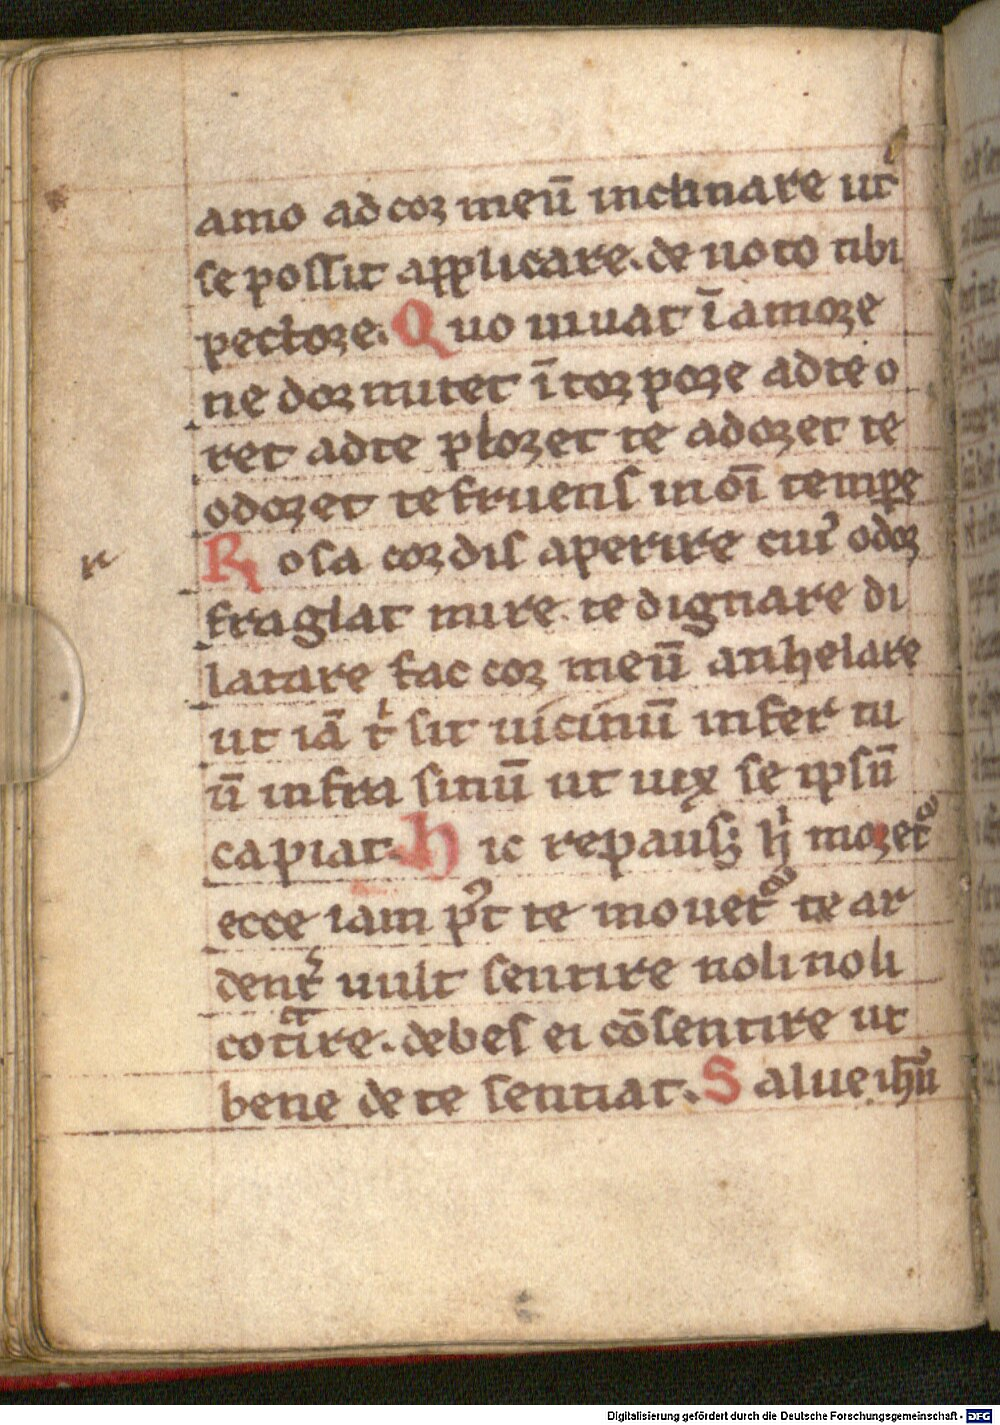 amo ad cor meū inclinare ut
se possit applicare. de uoto tibi
pectore. Quo uiuat ī amore
ne dormitet ī torpore ad te o
ret ad te ploret te adoret te
odoret te fruens in oī tempe
Rosa cordis aperire cui' odor
fraglat mire. te dignare di
latare fac cor meū anhelare
ut iā t' sit uicinū infer tu
ū infra sinū ut uix se ipsū
capiat. Hic repaus; h' moret'
ecce iam p't te mouet' te ar
dent' uult sentire noli noli
cotire. debes ei cōsentire ut
bene de te sentiat. Salue ihū
r
Digitalisierung gefördert durch die Deutsche Forschungsgemeinschaft - DFG